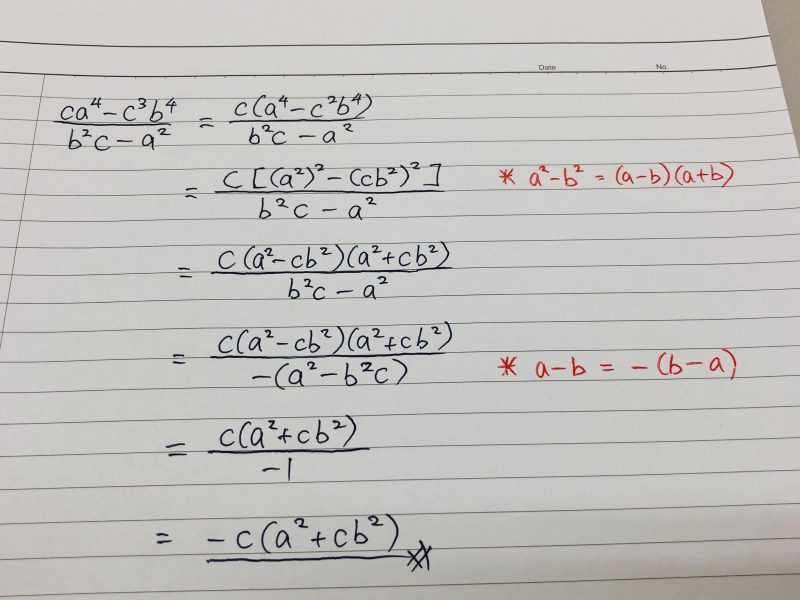 Date No.
ca⁴ - c³b⁴ / b²c - a² = c(a⁴ - c²b⁴) / b²c - a²
= c[(a²)² - (cb²)²] / b²c - a² * a² - b² = (a-b)(a+b)
= c(a² - cb²)(a² + cb²) / b²c - a²
= c(a² - cb²)(a² + cb²) / -(a² - b²c) * a - b = -(b - a)
= c(a² + cb²) / -1
= -c(a² + cb²)